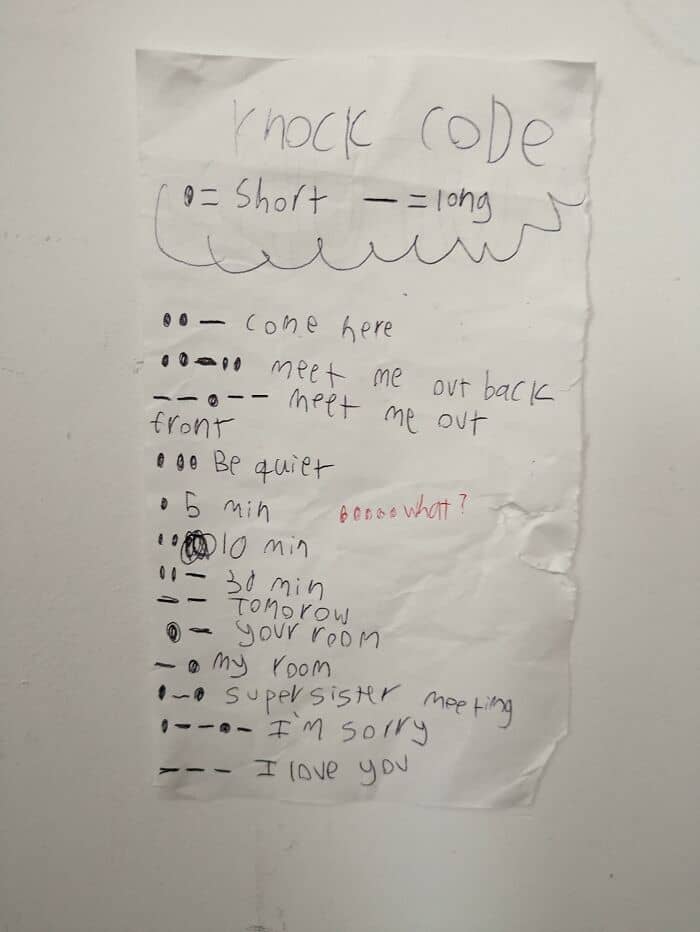 Knock coDe
• = Short — = long
•• — come here
••—•• meet me out back
——•—— meet me out
front
••• Be quiet
• 5 min ••••• what?
•• 10 min
•• — 30 min
—— Tomorow
• — your room
— • my room
•—• super sister meeting
•——•— I'm sorry
——— I love you